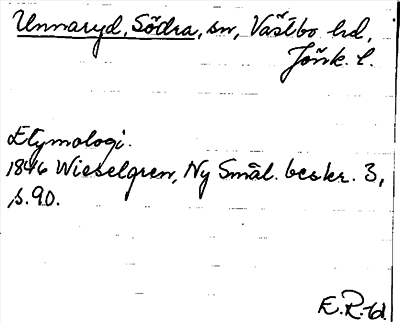 Unnaryd, Södra, sn, Västbo hd,
Jönk. l.
Etymologi.
1846 Wieselgren, Ny Smål. beskr. 3,
s. 90.
E. R-d.